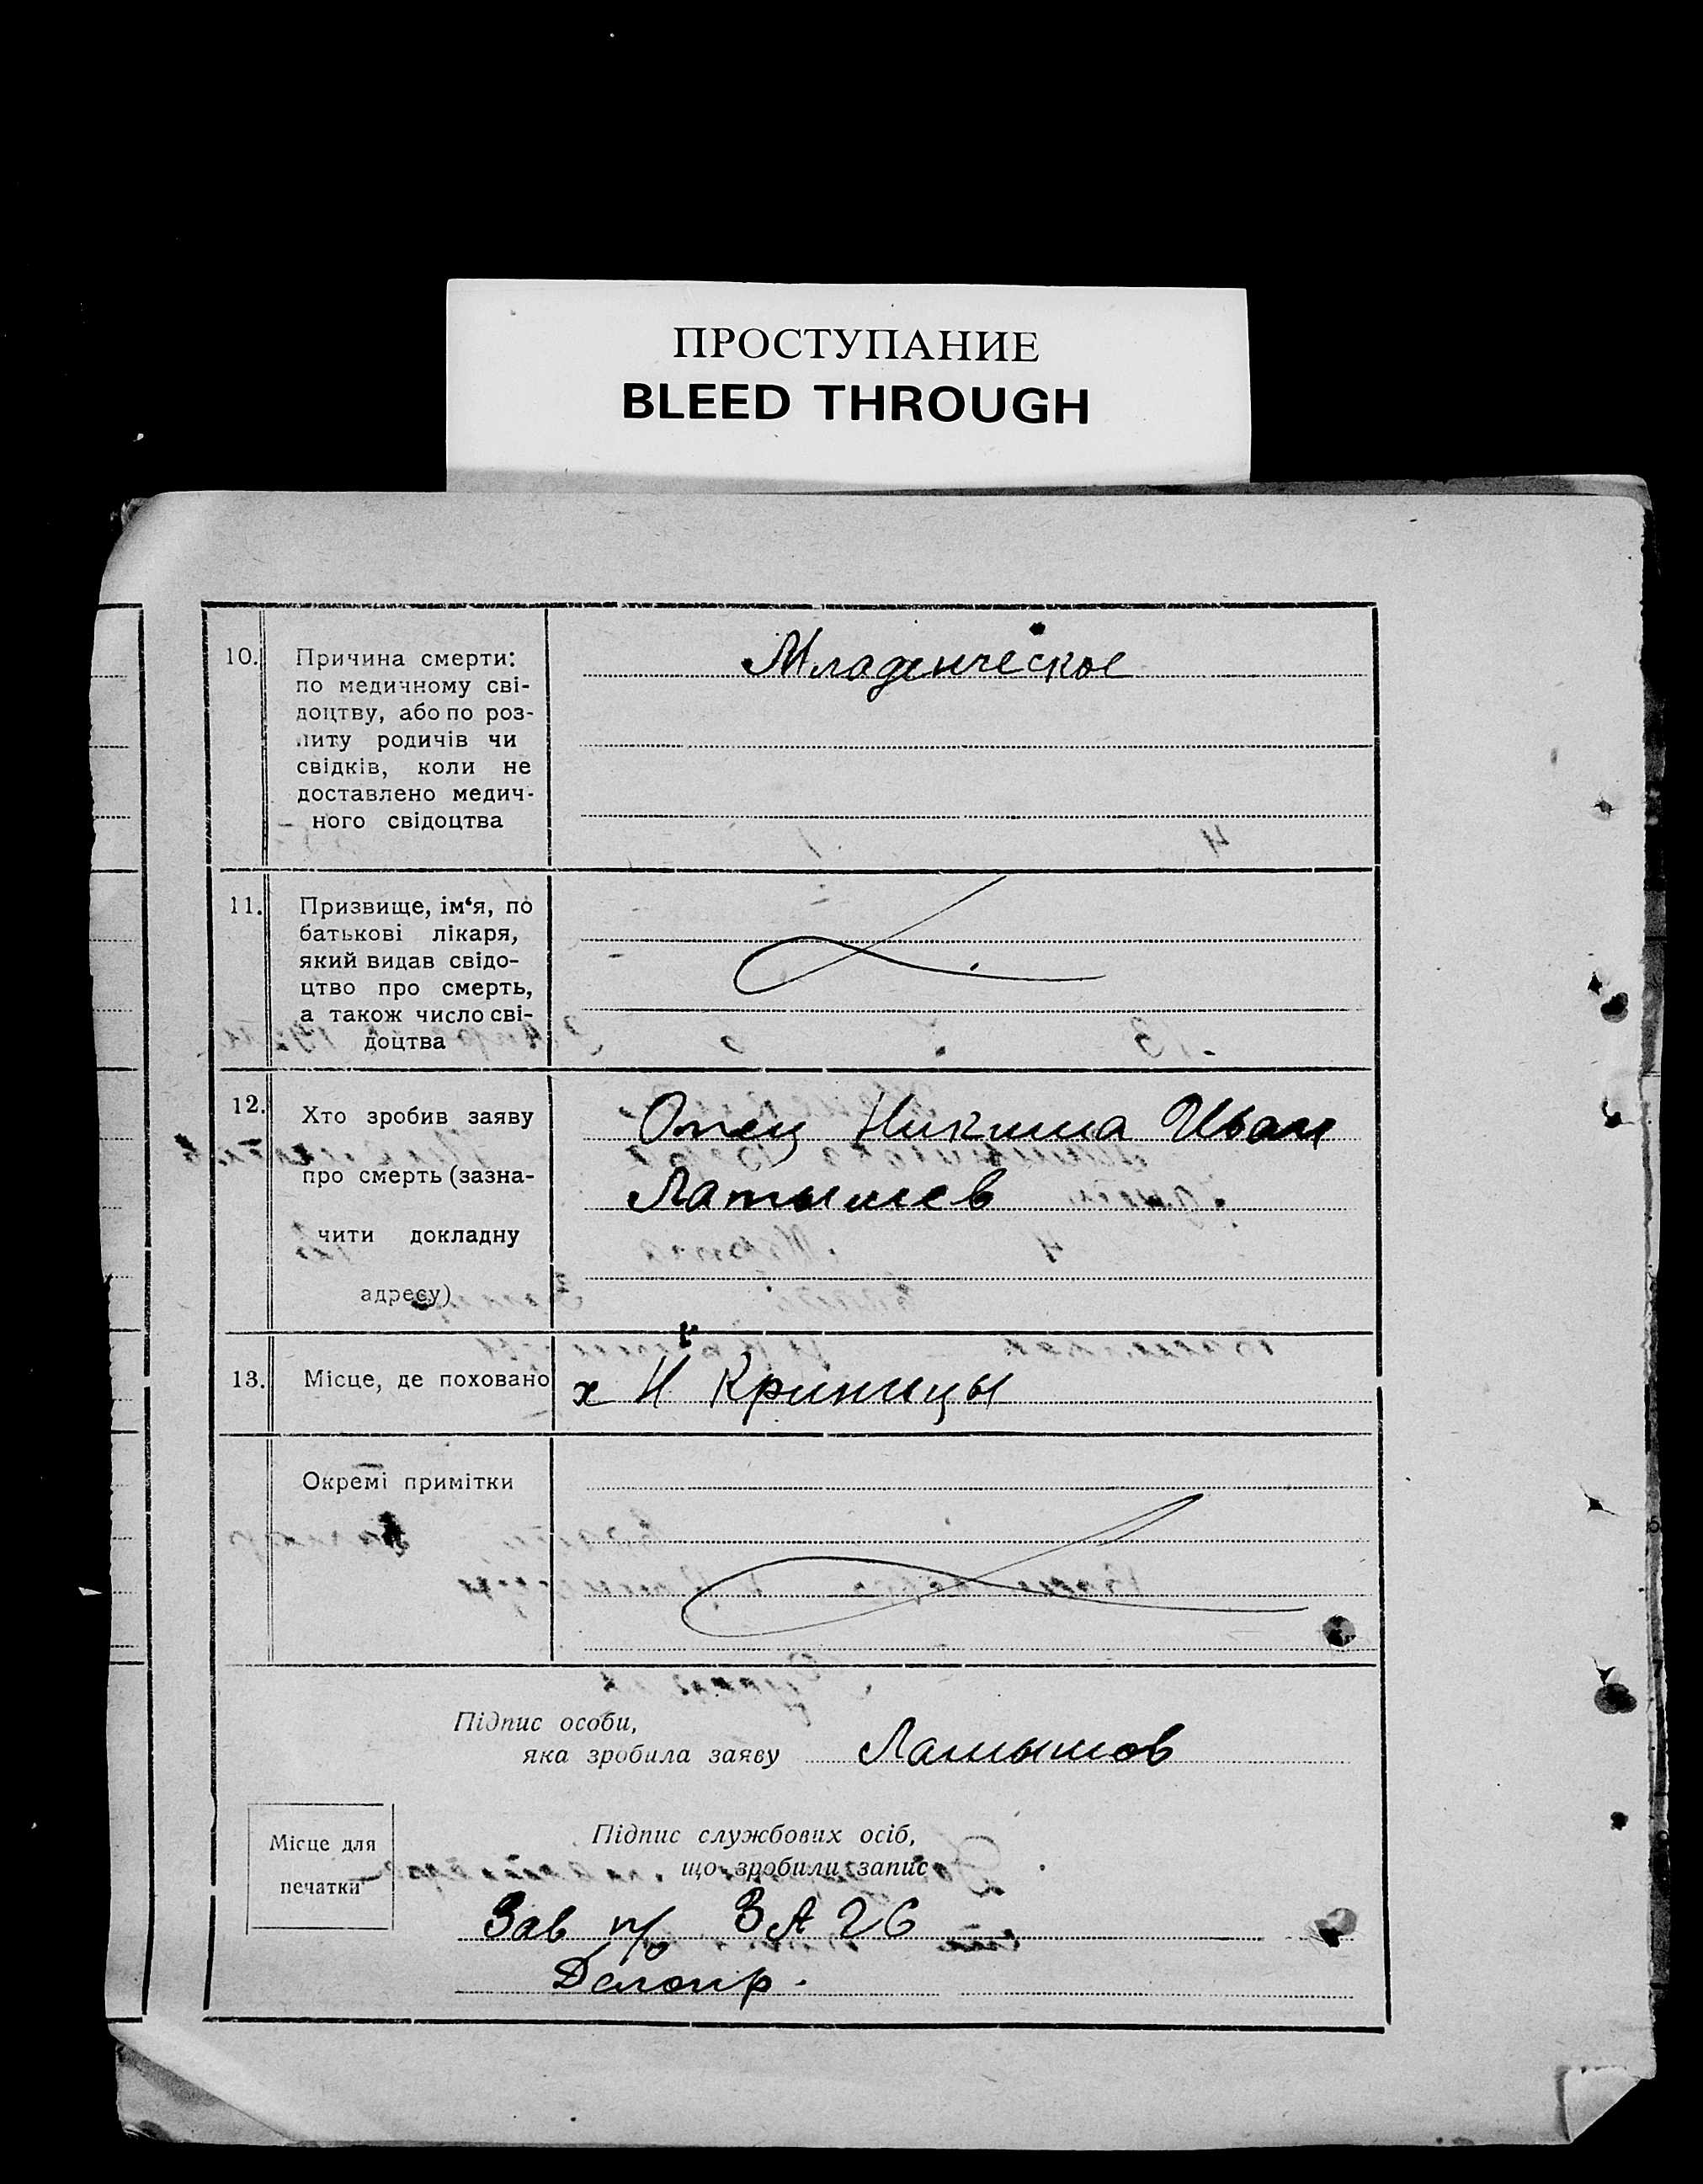 ПРОСТУПАНИЕ
BLEED THROUGH
10. Причина смерти: Младенческое
по медичному сві-
доцтву, або по роз-
питу родичів чи
свідків, коли не
доставлено медич-
ного свідоцтва
11. Призвище, ім‘я, по
батькові лікаря,
який видав свідо-
цтво про смерть,
а також число сві-
доцтва
12. Хто зробив заяву Отец Никита Иван
про смерть (зазна- Латышев
чити докладну
адресу)
13. Місце, де поховано х Н Криницы
Окремі примітки
Підпис особи,
яка зробила заяву Латышов
Місце для
печатки
Підпис службових осіб,
що зробили запис
Зав п/о ЗАГС
Делопр.